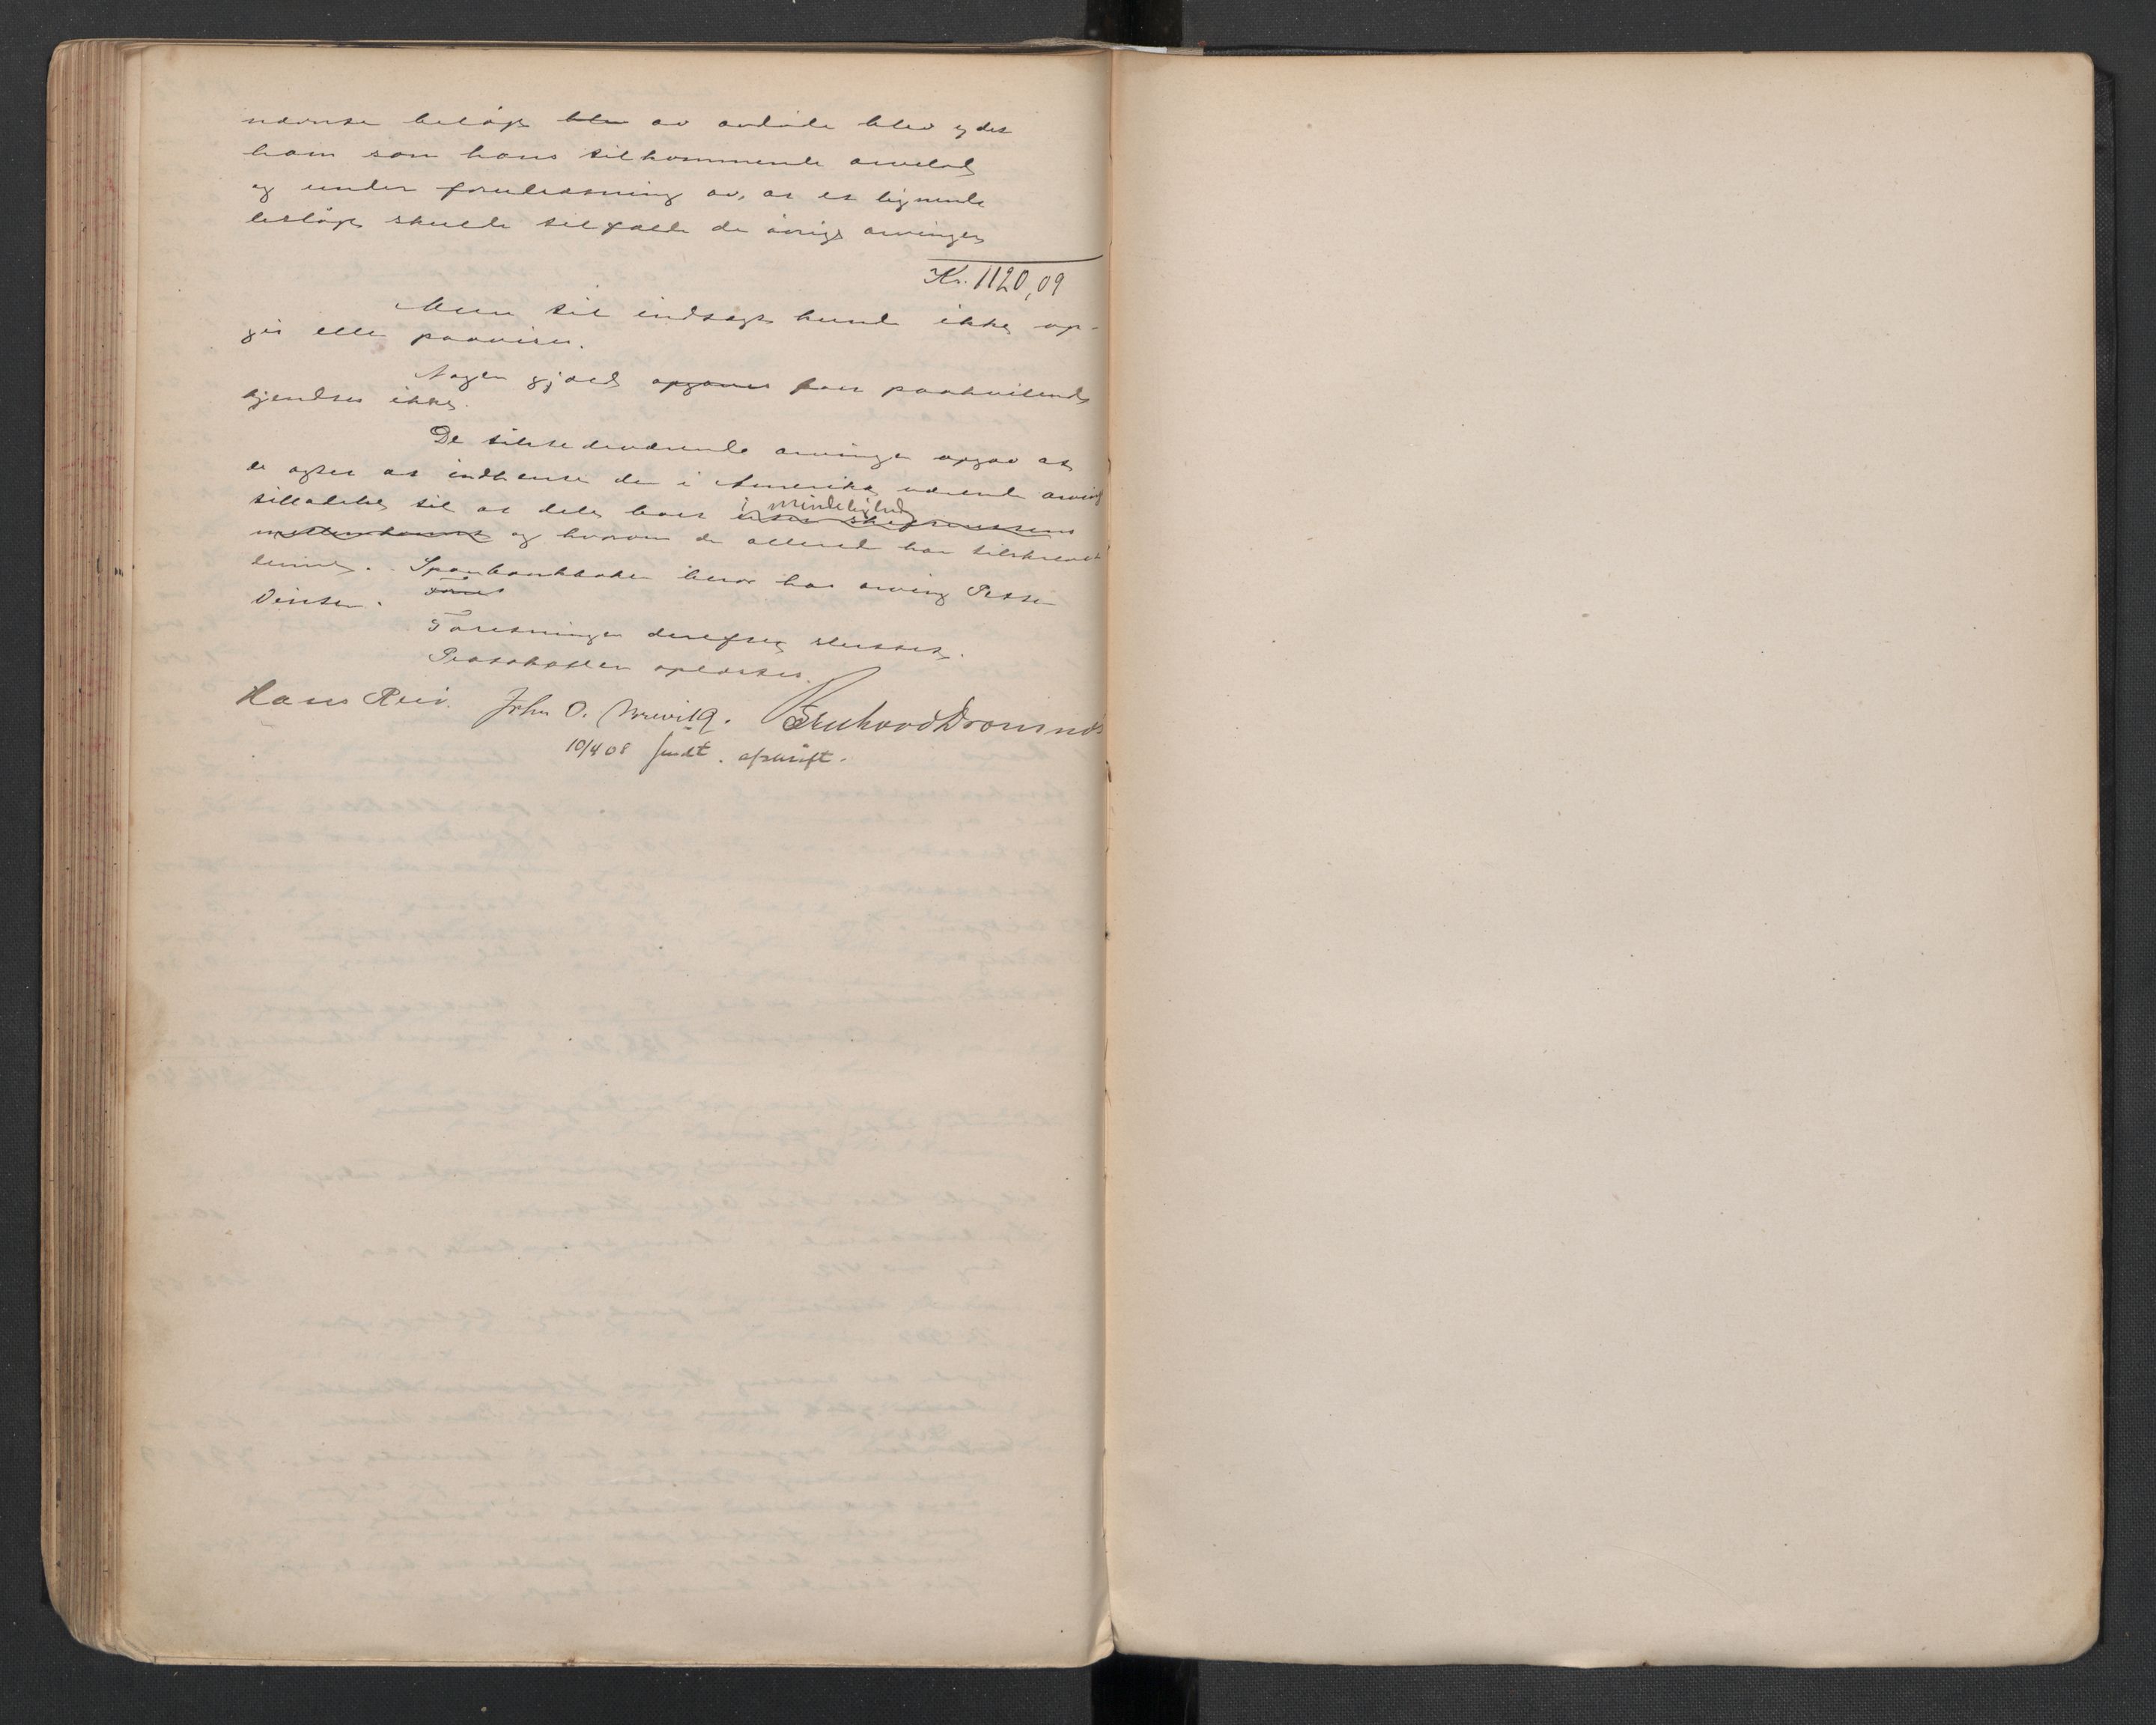 nævnte beløp blev av avdøde blev ydet
ham som hans tilkommende arvelod
og under forutsætning av, at et lignende
beløp skulde tilfalde de øvrige arvinger
Kr. 1120,09
Mere til indtægt kunde ikke op-
gis eller paavises.
Nogen gjæld opgaves boet paahvilende
kjendtes ikke.
De tilstedeværende arvinger opgav at
de agter at indhente den i Amerika værende arvings
i mindelighed
tilladelse til at dele boet uten skifterettens
mellemkomst og hvorom de allerede har tilskrevet
denne. Sparbankboken beror hos arving Petter
Forret
Forretningen derefter sluttet.
Protokollen oplæstes.
Hans Reiv. John O.
10/4 08 sendt. afskrift.